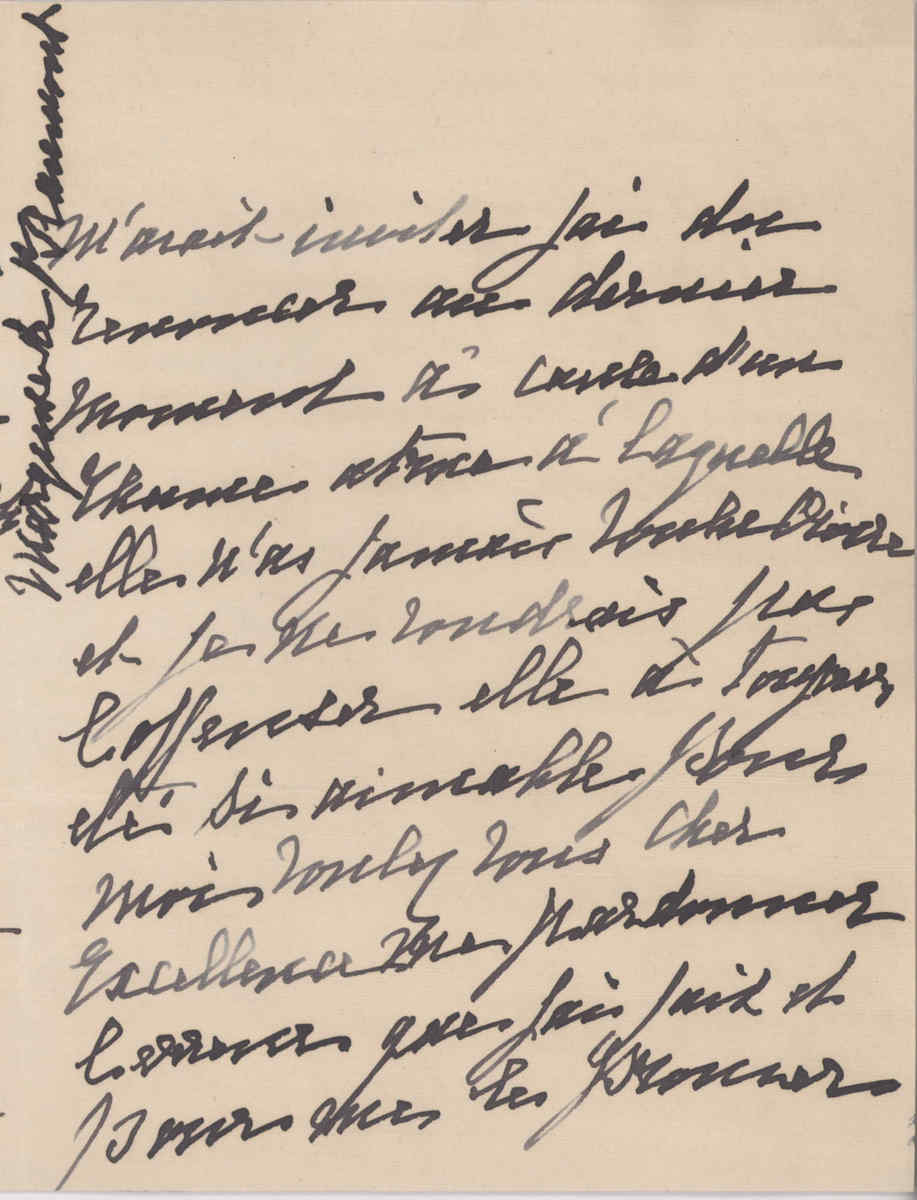 M'avait inviter jai du
renoncer au dernier
moment à cause d'un
rhume atroce à laquelle
elle n'as jamais voulu croire
et je ne voudrais pas
l'offenser elle à toujour
été si aimable pour
moi voulez vous cher
Excellence me pardonner
lerreur que jai fait et
pour me le prouver
Marquise de